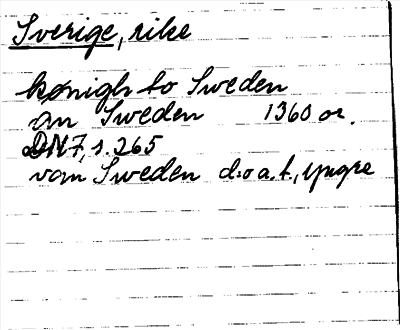 Sverige, rike
kønigh to Sweden
an Sweden 1360 or.
DN7, s. 265
van Sweden d.o a.t., yngre